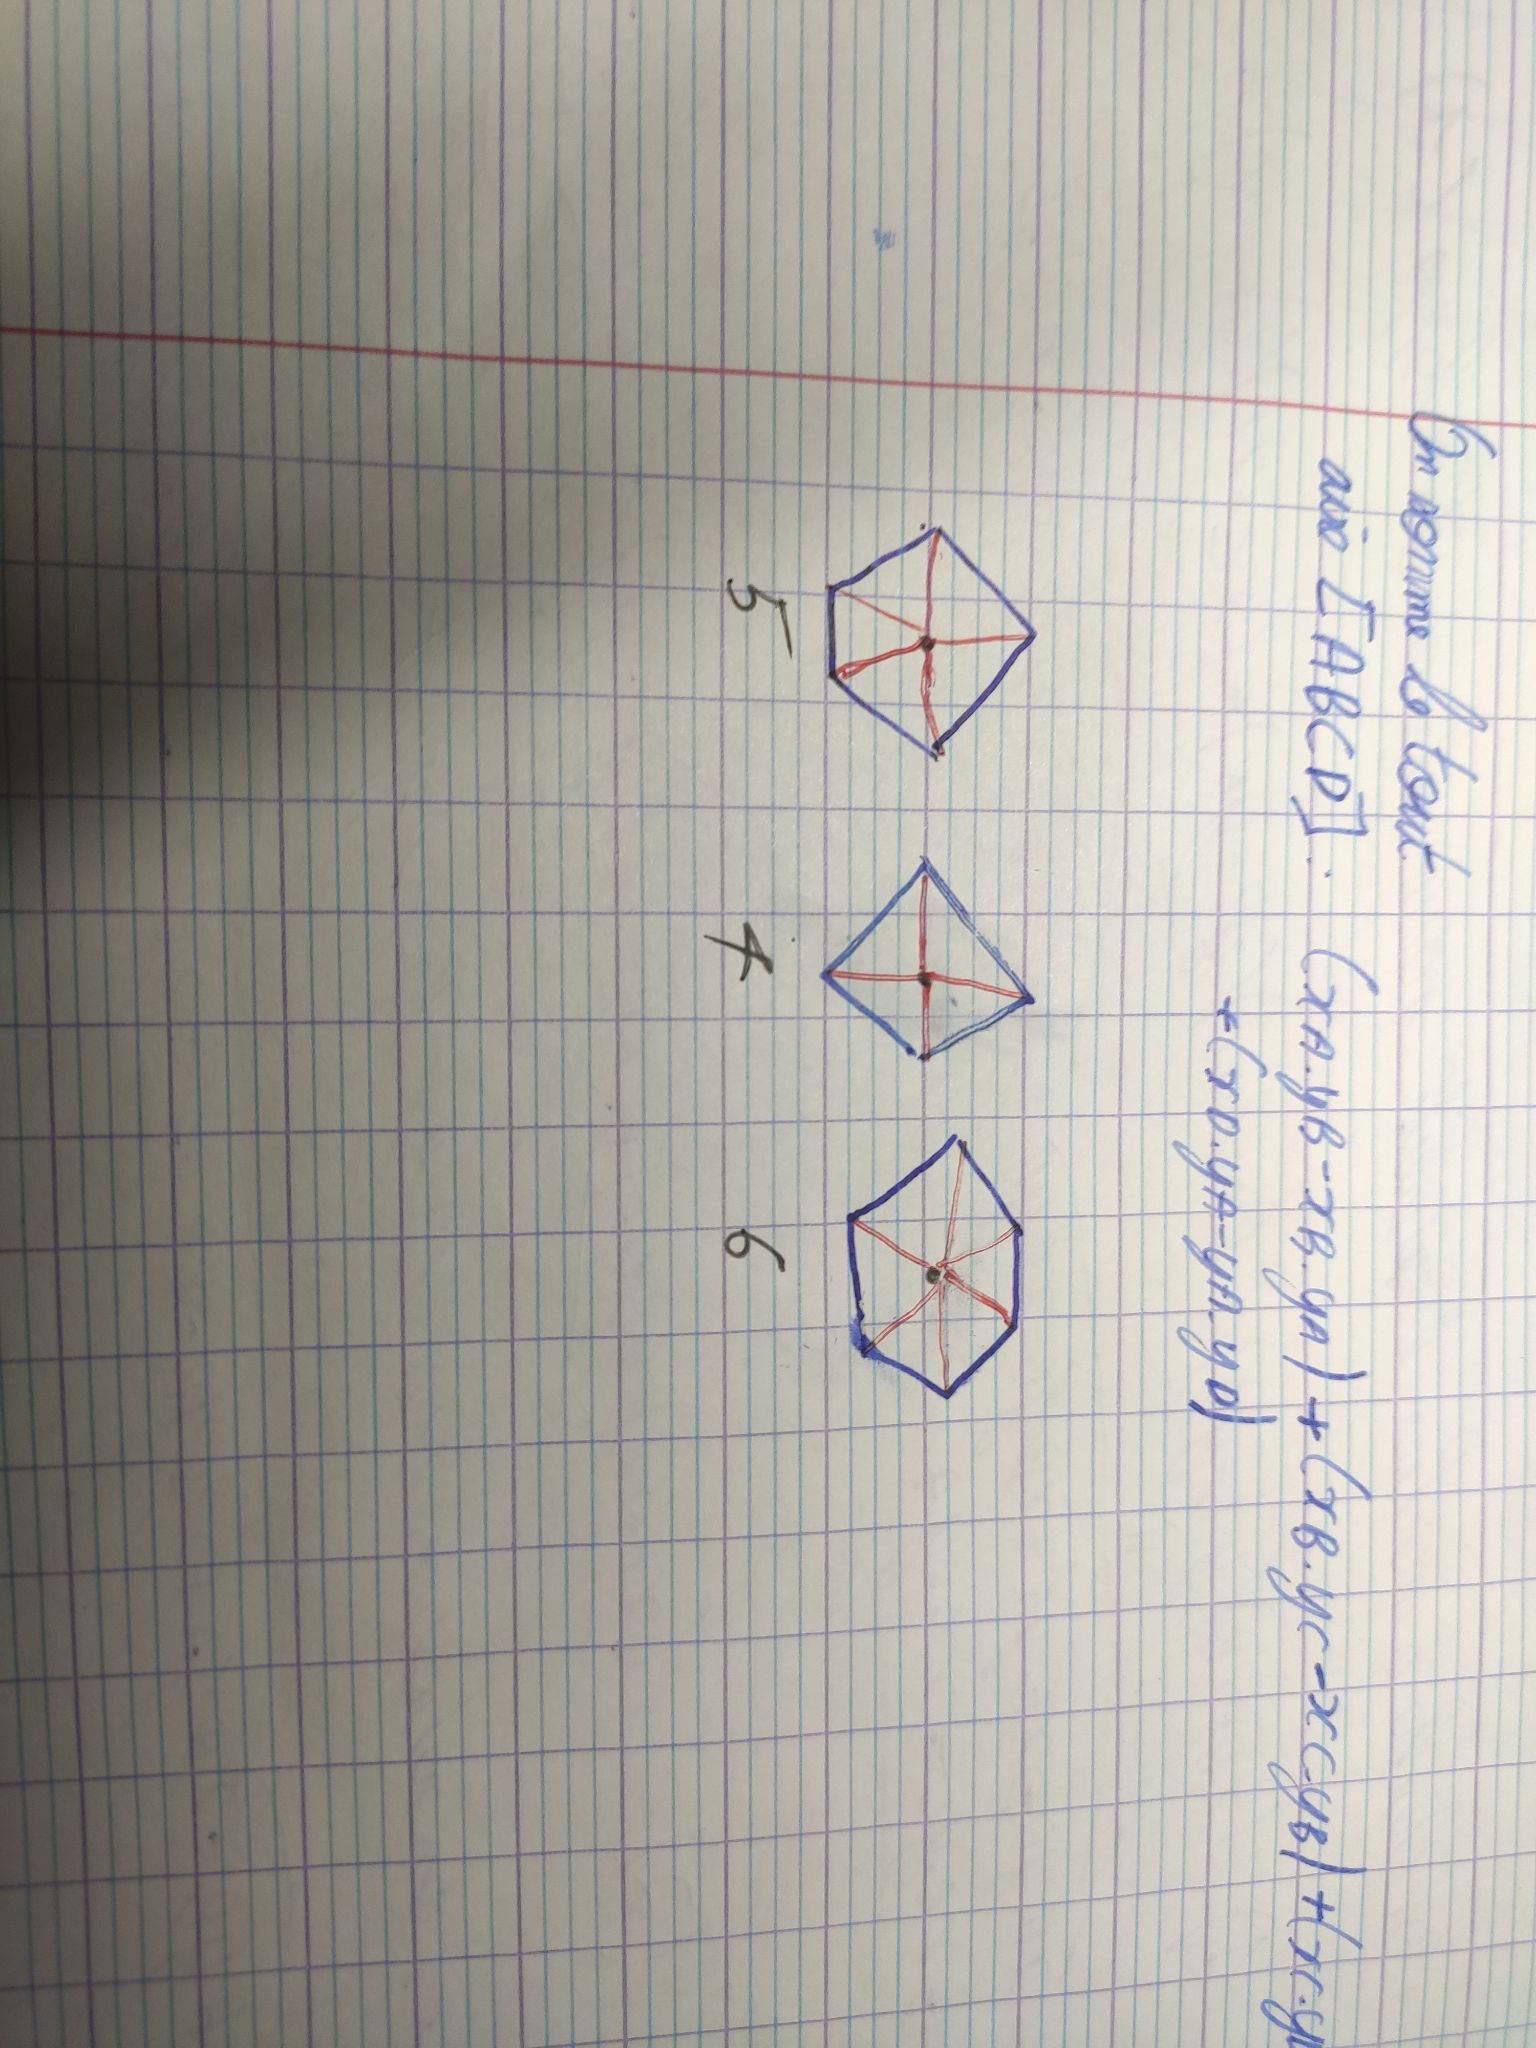 On somme le tout
aire [ABCD]: (xA.yB-xB.yA)+(xB.yC-xC.yB)+(xC.y
+(xD.yA-yA.yD)
5 4 6